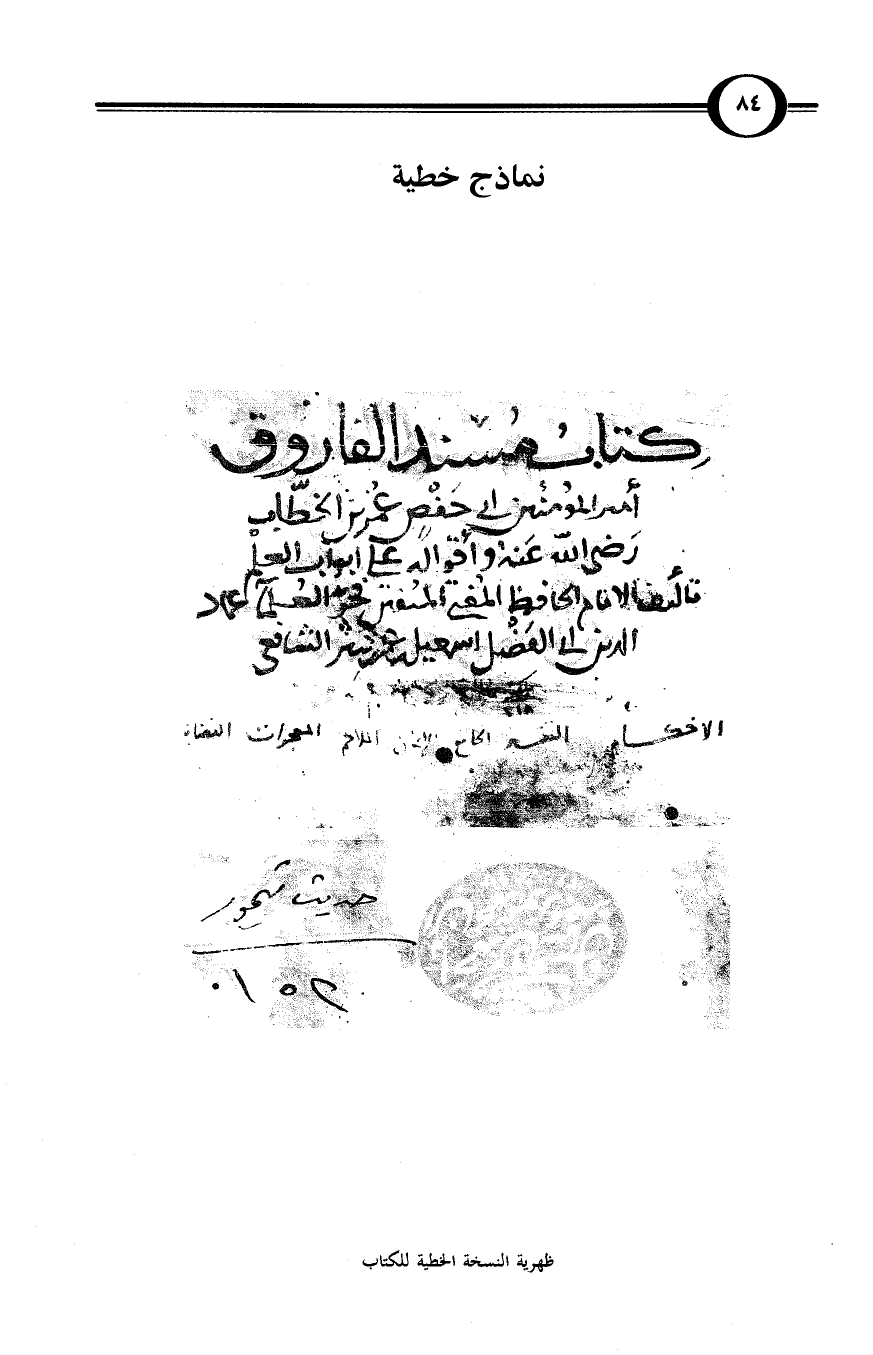 ٨٤
نماذج خطية
كتاب مسند الفاروق
أمير المؤمنين ابي حَفْصٍ عُمَر بن الخطَّاب
رَضي الله عَنهُ وأقواله على ابواب العلم
تأليف الامام الحافظ المفتي المفسر فخر العلماء عماد
الدين ابي الفَضْل اسمعيل بن عمر بن كثير الشافعي
الاحكام التفسير الجامع الملاحم المعجزات الفضائل
حديث تيمور
١٥٢٠
ظهرية النسخة الخطية للكتاب